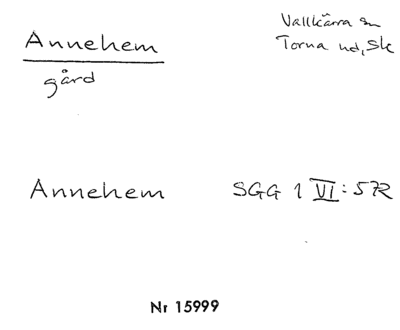 Annehem
gård
Vallkärra sn
Torna hd, Sk
Annehem SGG 1 VI:572
Nr 15999